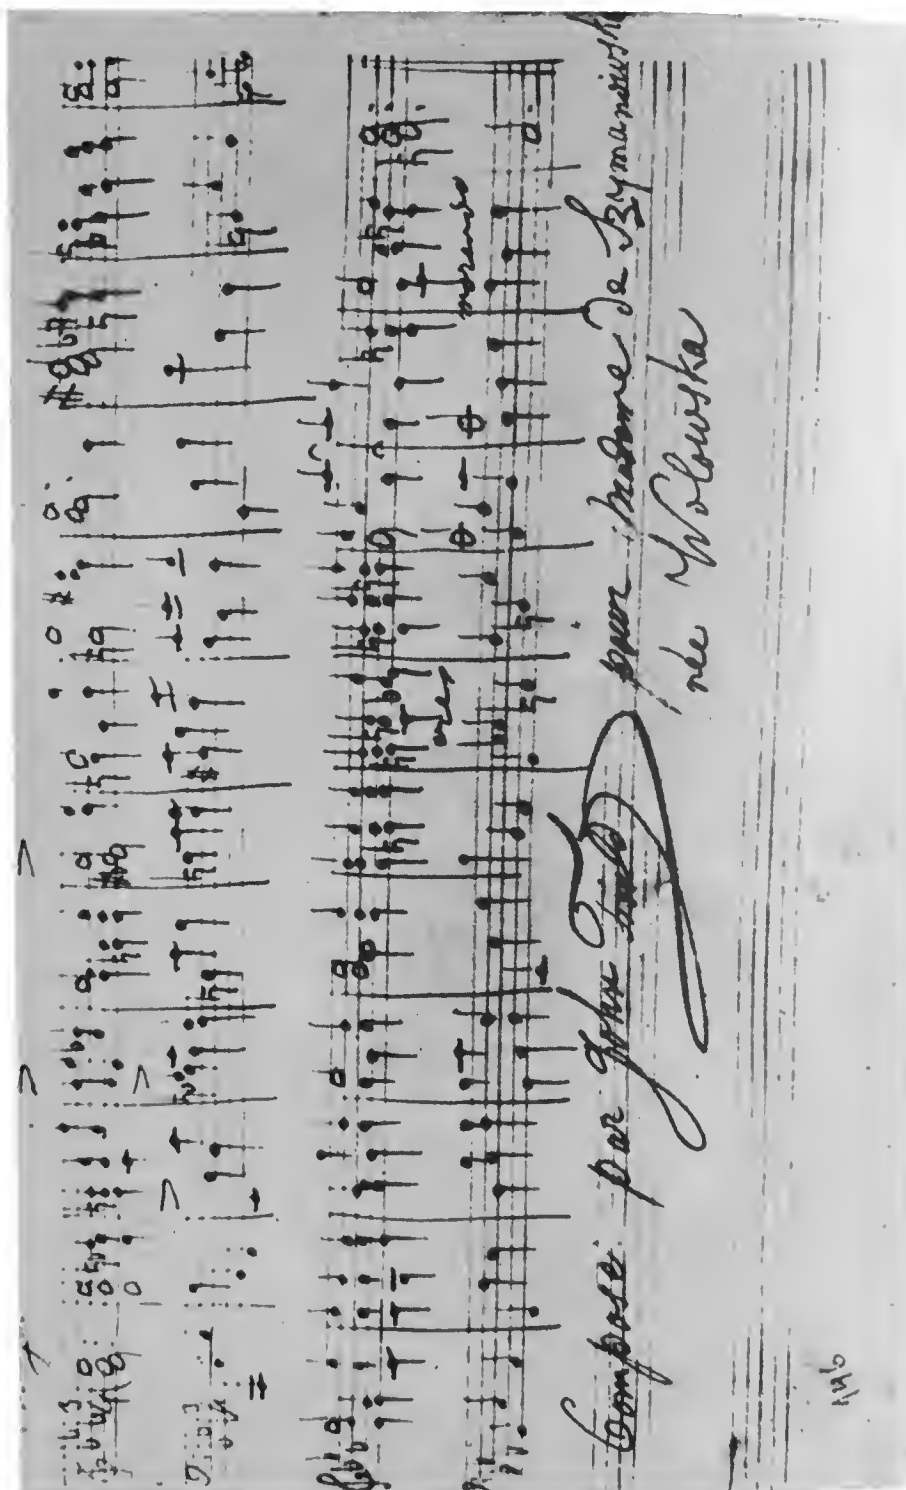 cres
morendo
Composé par John Field pour Madame de Szymanowska
née Wolowska